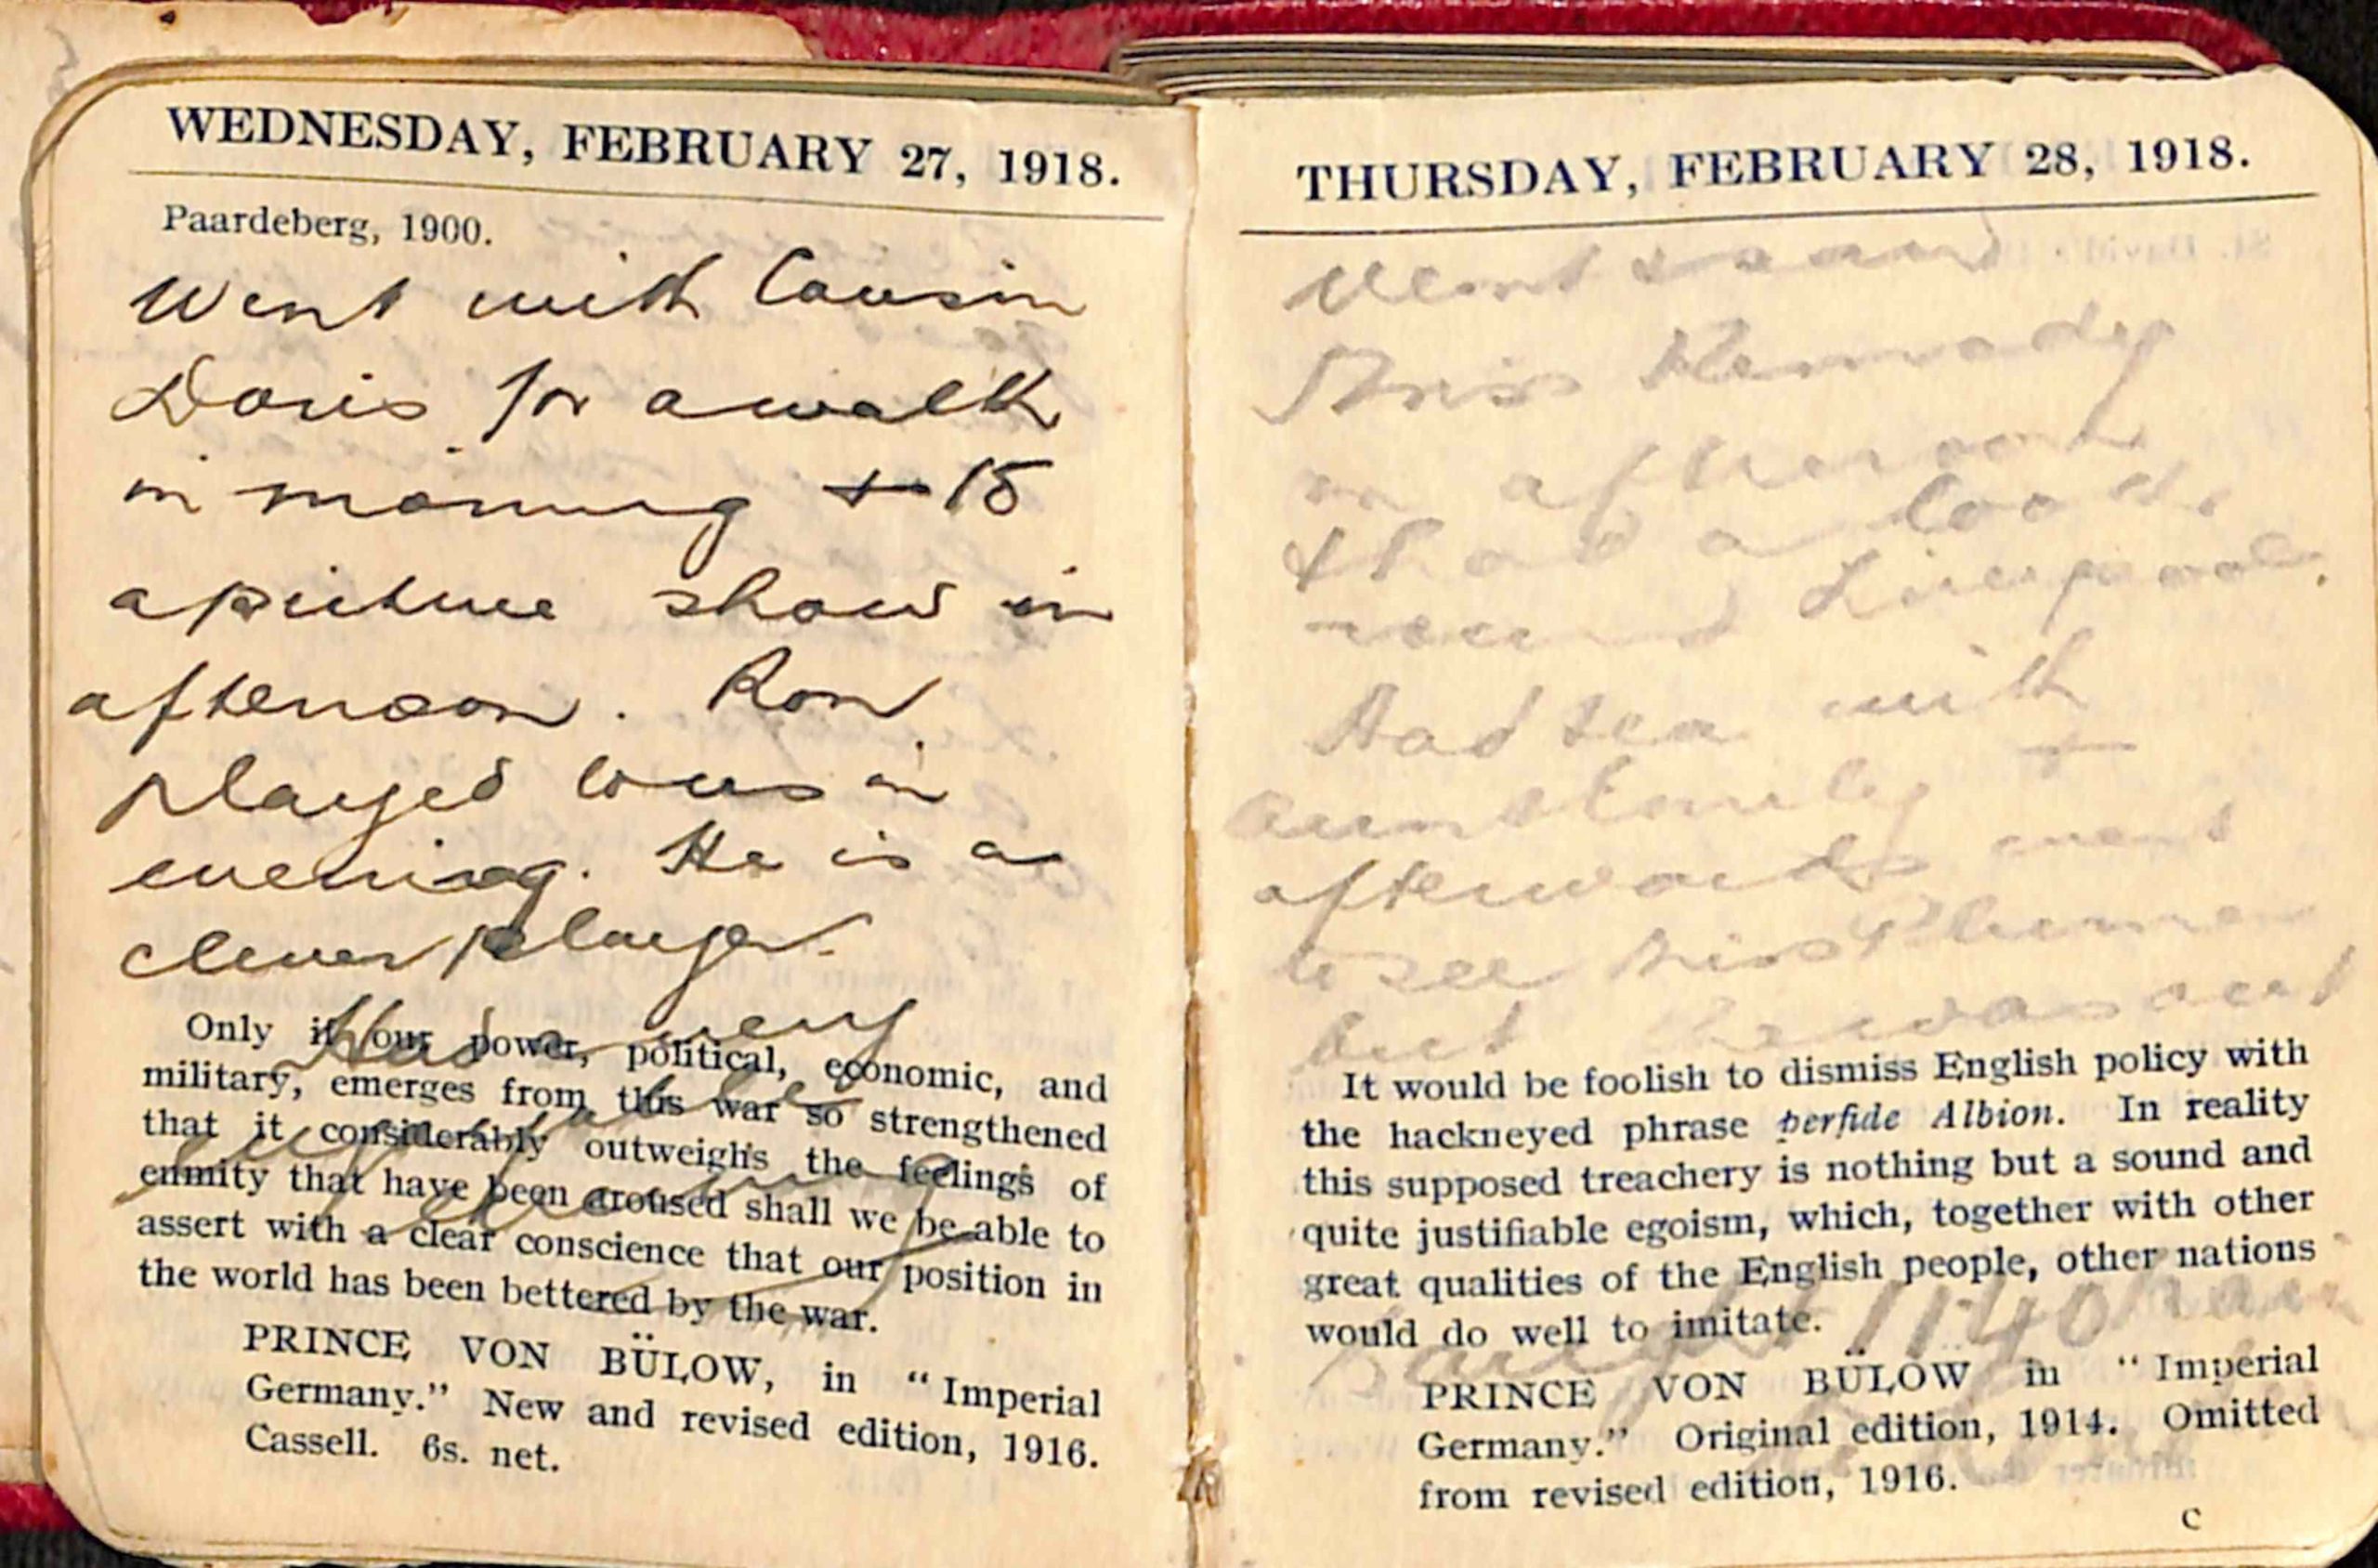 WEDNESDAY, FEBRUARY 27, 1918.
Paardeberg, 1900.
Went with Cousin
Doris for a walk
in morning + to
a picture show in
afternoon. Ron
played to us in
evening. He is a
clever player.
Had a very
enjoyable
evening
Only if our power, political, economic, and
military, emerges from this war so strengthened
that it considerably outweighs the feelings of
enmity that have been aroused shall we be able to
assert with a clear conscience that our position in
the world has been bettered by the war.
PRINCE VON BÜLOW, in "Imperial
Germany." New and revised edition, 1916.
Cassell. 6s. net.
THURSDAY, FEBRUARY 28, 1918.
Went
Miss Kennady
in afternoon
+ had a look
round Liverpool.
Had tea with
Aunt Emily +
afterwards went
to see Miss
but he was out
It would be foolish to dismiss English policy with
the hackneyed phrase perfide Albion. In reality
this supposed treachery is nothing but a sound and
quite justifiable egoism, which, together with other
great qualities of the English people, other nations
would do well to imitate.
Caught 11.40
PRINCE VON BÜLOW in "Imperial
Germany." Original edition, 1914. Omitted
from revised edition, 1916.
C